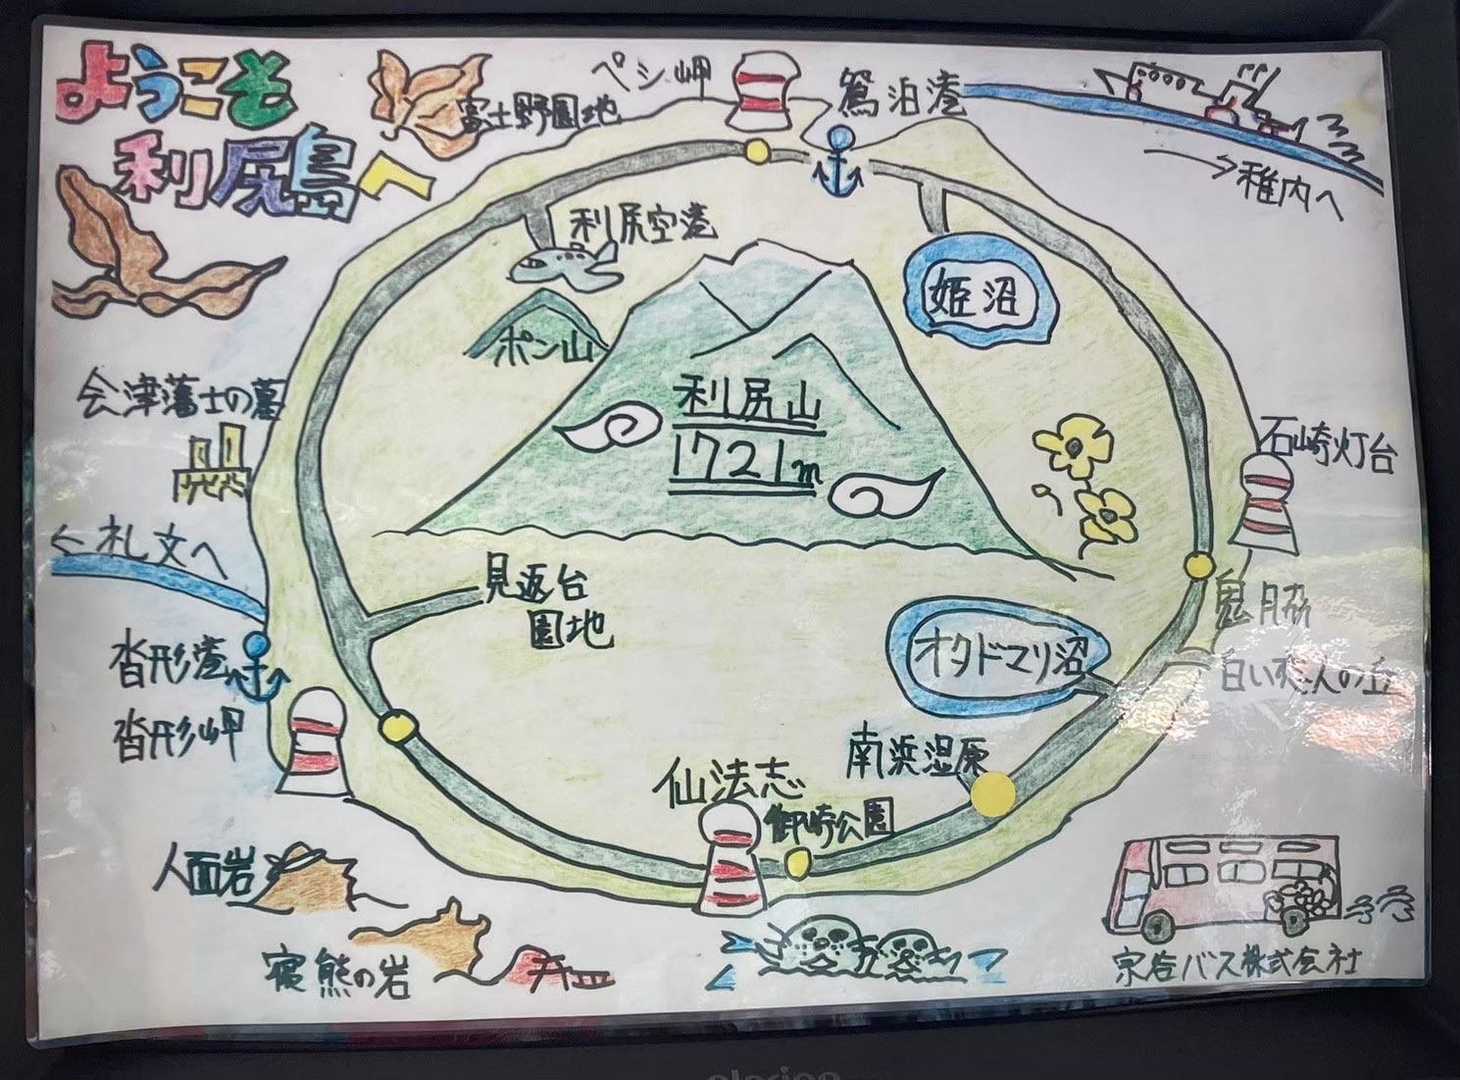 ようこそ
利尻島へ
富士野園地
ペシ岬
鴛泊港
→稚内へ
利尻空港
姫沼
ポン山
利尻山
1721m
会津藩士の墓
石崎灯台
←礼文へ
見返台
園地
鬼脇
沓形港
オタドマリ沼
白い恋人の丘
沓形岬
南浜湿原
仙法志
御崎公園
人面岩
寝熊の岩
宗谷バス株式会社